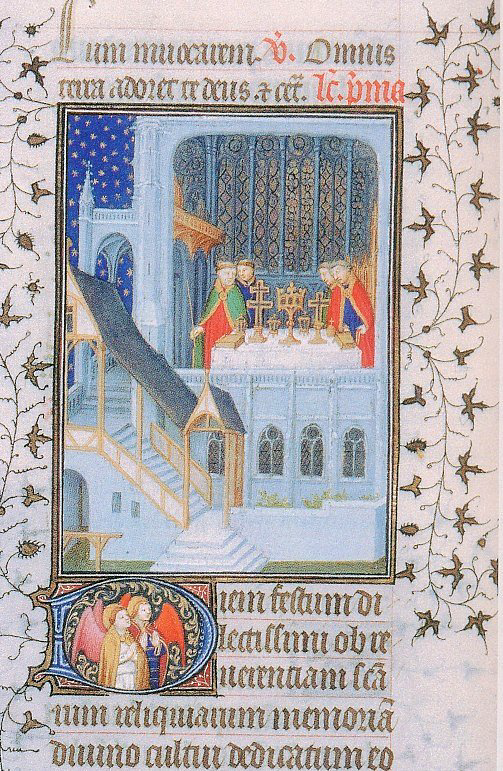 Lum inuocarem. V̄. Omnis
terra adoret te deus. ⁊ cet̄. lc̄. p̄ma
Diem festum di
lectissimi ob re
uerentiam scā
rum reliquiarum memoriā
diuino cultui dedicatum eo